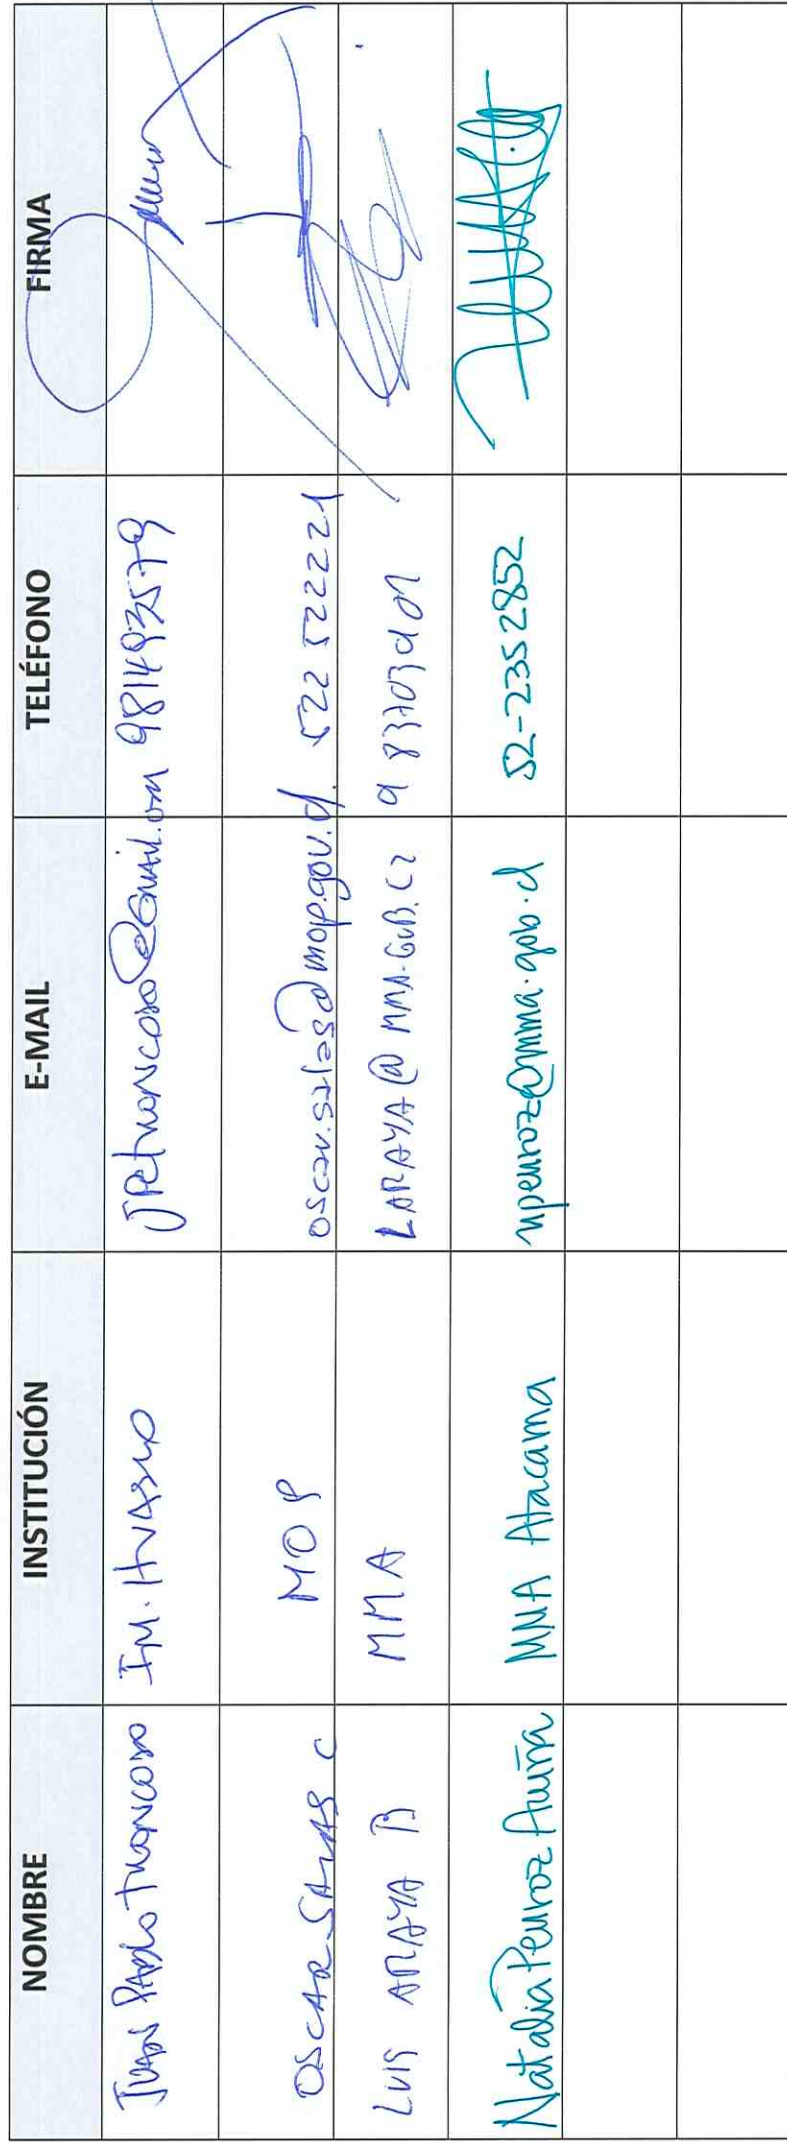 NOMBRE INSTITUCIÓN E-MAIL TELÉFONO FIRMA
JUAN PABLO TRONCOSO I.M. HUASCO JPetroncoso@Gmail.com 981493579
OSCAR SALAS C MOP oscar.salas@mop.gov.cl. 522 522221
LUIS ARAYA B MMA LARAYA@MMA.GOB.CL 9 83703901
Natalia Penroz Acuña MMA Atacama npenroz@mma.gob.cl 52-2352852